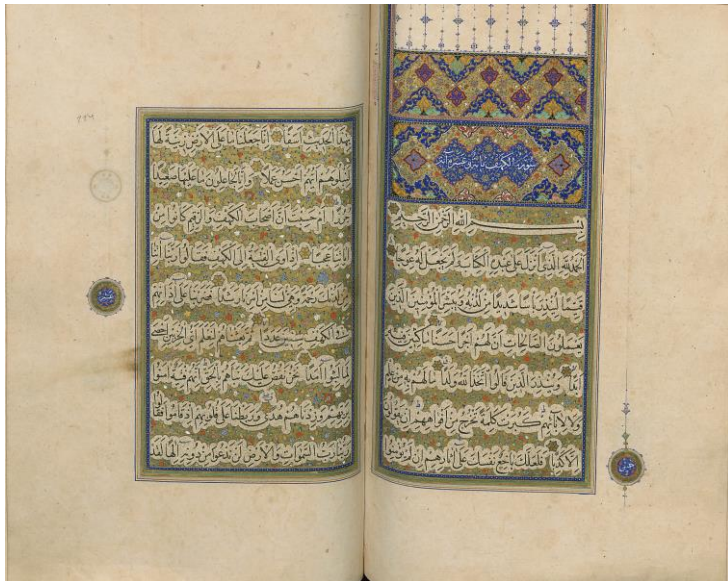 سورة الكهف مائة وعشر آيات
بسم الله الرحمن الرحيم
الحمد لله الذي أنزل على عبده الكتاب ولم يجعل له عوجا
قيما لينذر بأسا شديدا من لدنه ويبشر المؤمنين الذين
يعملون الصالحات أن لهم أجرا حسنا ماكثين فيه
أبدا وينذر الذين قالوا اتخذ الله ولدا ما لهم به من علم
ولا لآبائهم كبرت كلمة تخرج من أفواههم إن يقولون
إلا كذبا فلعلك باخع نفسك على آثارهم إن لم يؤمنوا
بهذا الحديث أسفا إنا جعلنا ما على الأرض زينة لها
لنبلوهم أيهم أحسن عملا وإنا لجاعلون ما عليها صعيدا
جرزا أم حسبت أن أصحاب الكهف والرقيم كانوا من
آياتنا عجبا إذ أوى الفتية إلى الكهف فقالوا ربنا آتنا
من لدنك رحمة وهيئ لنا من أمرنا رشدا فضربنا على آذانهم
في الكهف سنين عددا ثم بعثناهم لنعلم أي الحزبين أحصى
لما لبثوا أمدا نحن نقص عليك نبأهم بالحق إنهم فتية آمنوا
بربهم وزدناهم هدى وربطنا على قلوبهم إذ قاموا فقالوا
ربنا رب السموات والأرض لن ندعو من دونه إلها لقد